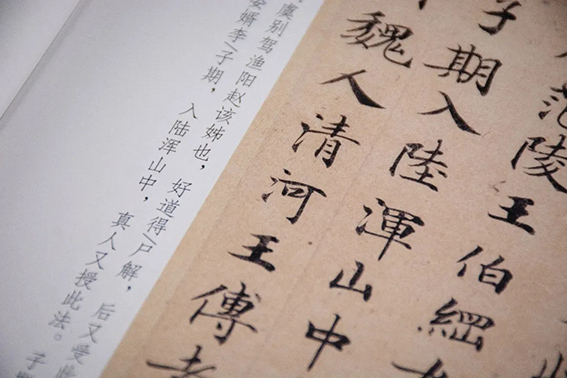 范陵王伯綱
子期入陸渾山中
魏人清河王傅
虞别驾渔阳赵该姊也，好道得/尸解，后又受此
婿李/子期，入陆浑山中，真人又授此法。手